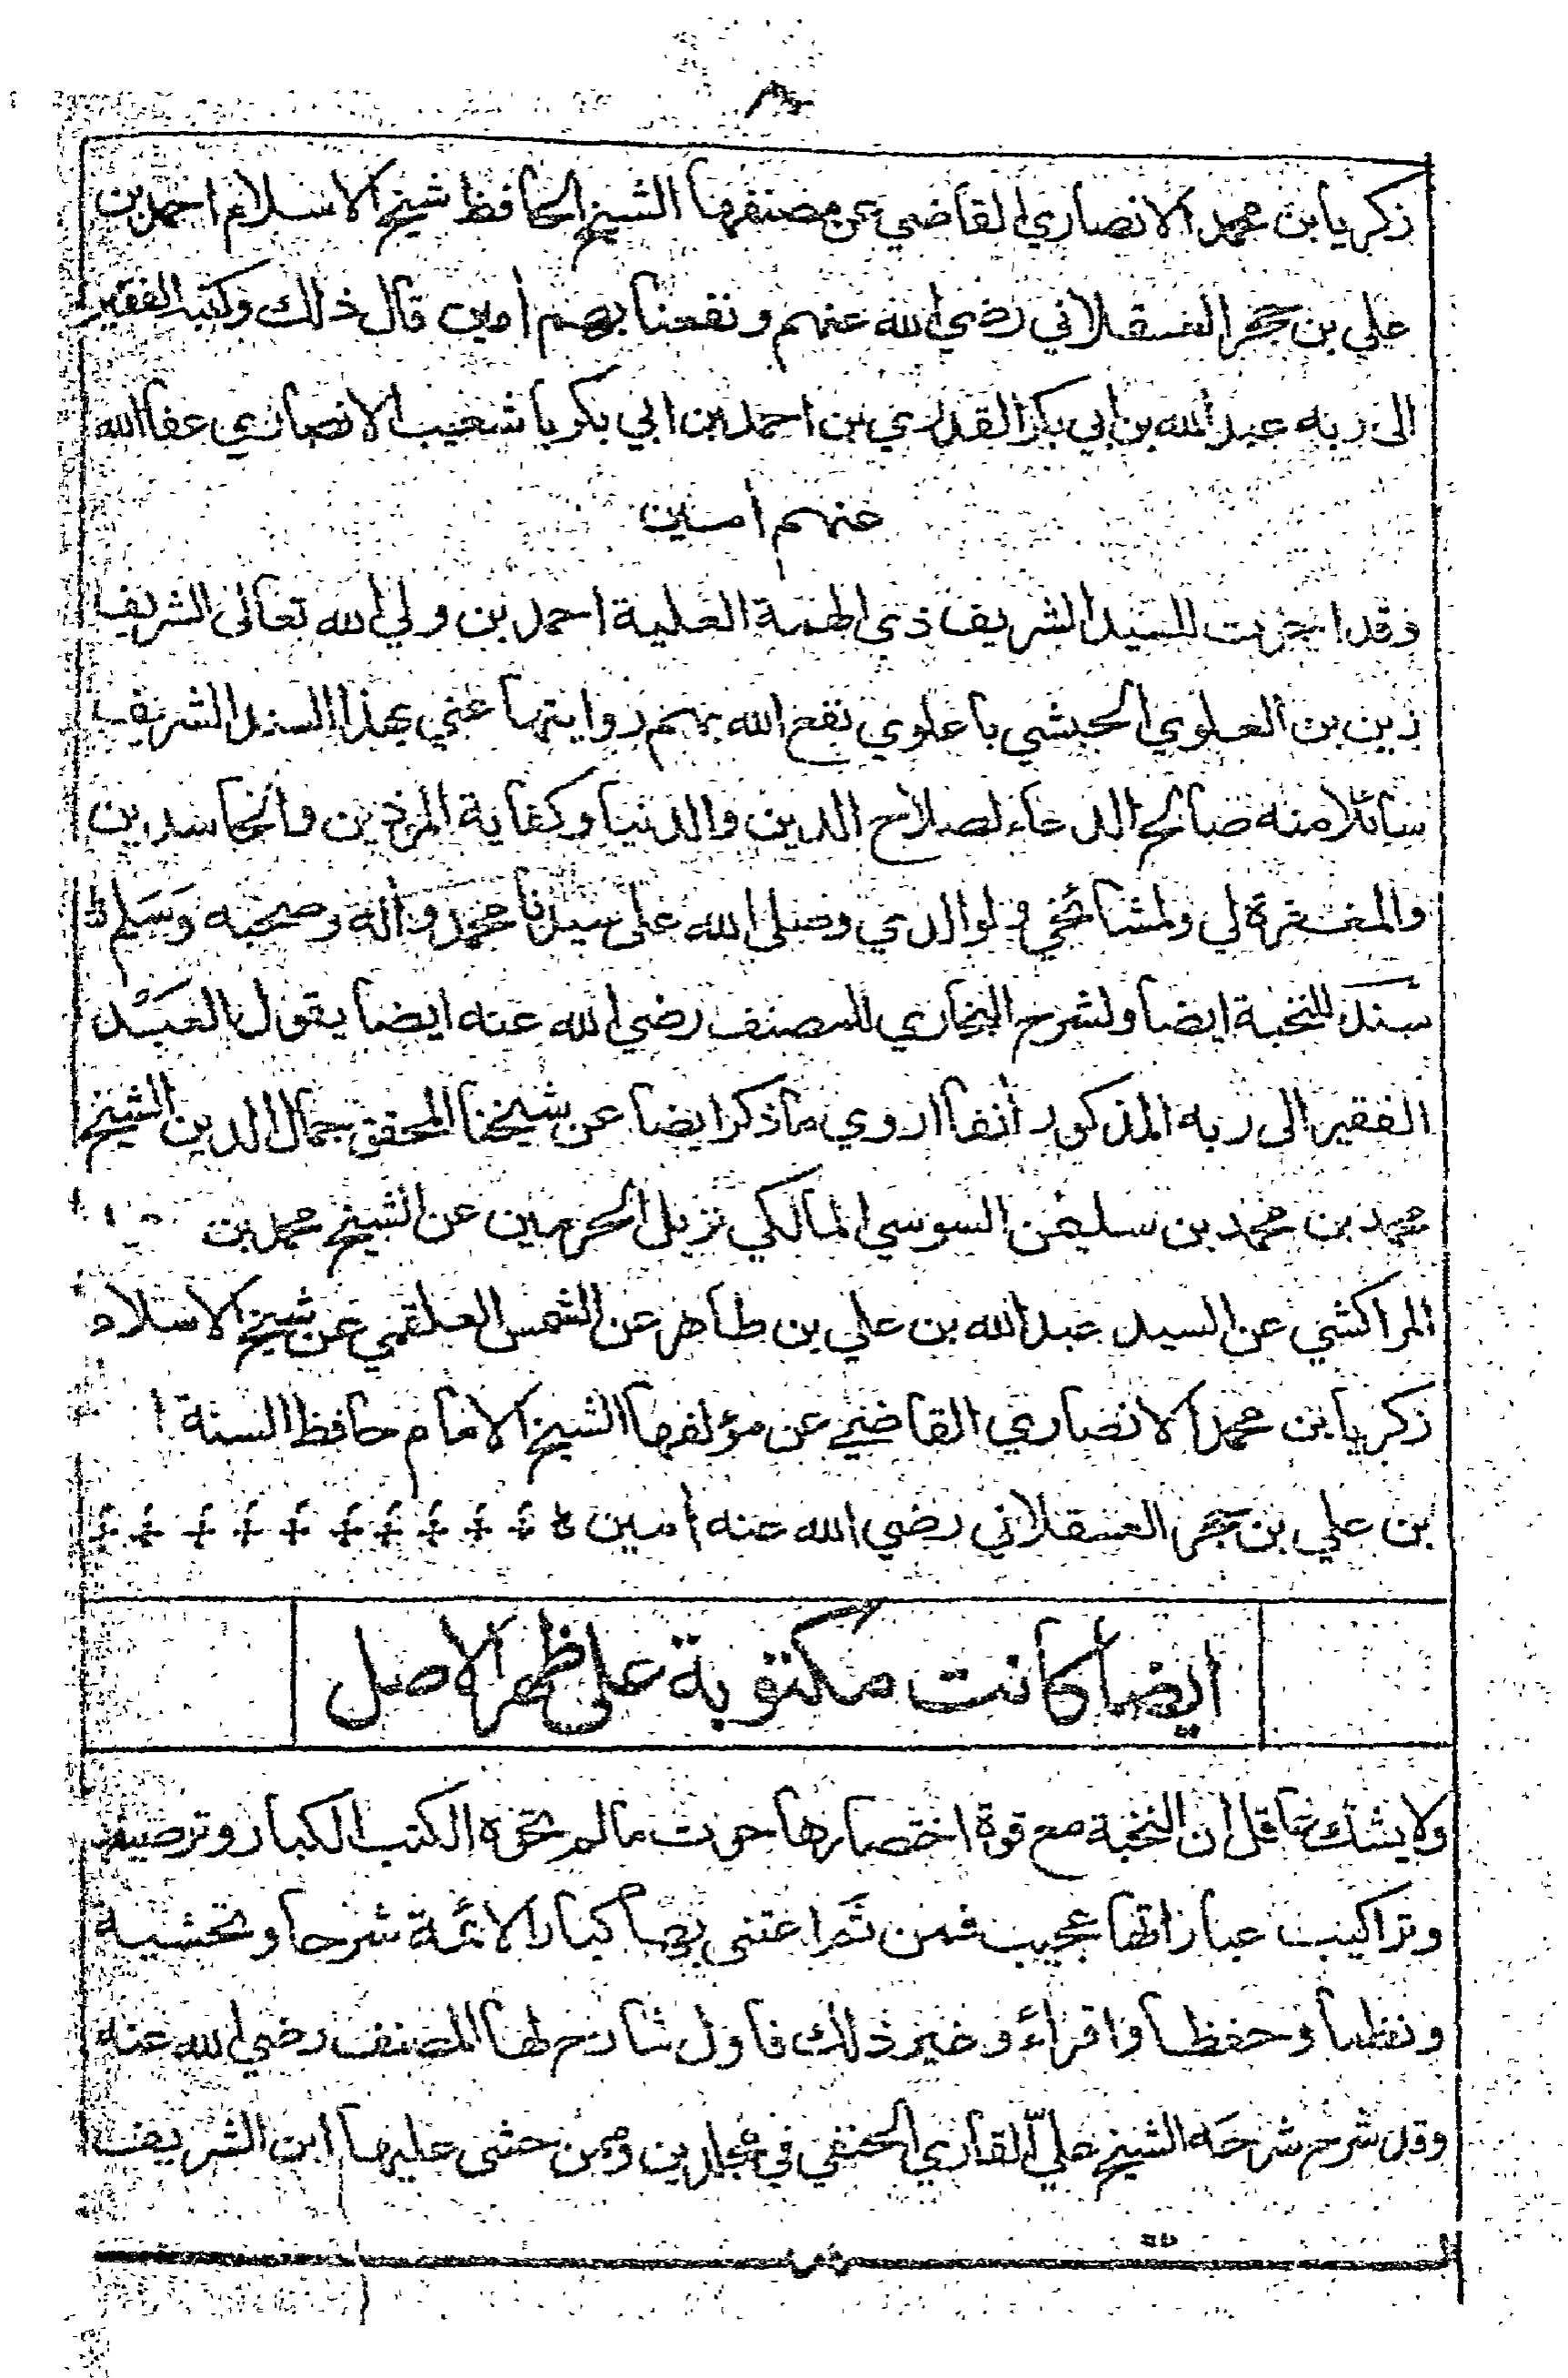 زكريا بن محمد الانصاري القاضي عن مصنفها الشيخ الحافظ شيخ الاسلام احمد بن
علي بن حجر العسقلاني رضي الله عنهم ونفعنا بهم أمين قال ذلك وكتبه الفقير
الى ربه عبد الله بن ابي بكر القدري بن احمد بن ابي بكر با شعيب الانصاري عفا الله
عنهم أمين
وقد اجزت للسيد الشريف ذي الهمة العلية احمد بن ولي الله تعالى الشريف
زين بن العلوي الحبشي باعلوي نفع الله بهم روايتها عني بهذا السند الشريف
سائلا منه صالح الدعاء لصلاح الدين والدنيا وكفاية الموذين والحاسدين
والمغفرة لي ولمشائخي ولوالدي وصلى الله على سيدنا محمد وأله وصحبه وسلم
سند للنخبة ايضا ولشرح البخاري للمصنف رضي الله عنه ايضا يقول العبد
الفقير الى ربه المذكور أنفا اروي ما ذكر ايضا عن شيخنا المحقق جمال الدين الشيخ
محمد بن محمد بن سليمن السوسي المالكي نزيل الحرمين عن الشيخ محمد بن
المراكشي عن السيد عبد الله بن علي بن طاهر عن الشمس العلقمي عن شيخ الاسلام
زكريا بن محمد الانصاري القاضي عن مؤلفها الشيخ الامام حافظ السنة
بن علي بن حجر العسقلاني رضي الله عنه أمين
ايضا كانت مكتوبة على ظهر الاصل
ولا يشك عاقل ان النخبة مع قوة اختصارها حوت ما لم تحوه الكتب الكبار وترصيف
وتراكيب عباراتها عجيب فمن ثم اعتنى بها كبار الائمة شرحا وتحشية
ونظما وحفظا واقراء وغير ذلك فاول شارح لها المصنف رضي الله عنه
وقد شرح شرحه الشيخ علي القاري الحنفي في مجلدين وممن حشى عليها ابن الشريف